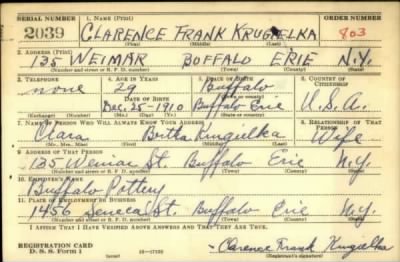 SERIAL NUMBER 1. NAME (Print) ORDER NUMBER
2039 CLARENCE FRANK KRUGIELKA 803
(First) (Middle) (Last)
2. ADDRESS (Print)
135 WEIMAR BUFFALO ERIE N.Y.
(Number and street or R. F. D. number) (Town) (County) (State)
3. TELEPHONE 4. AGE IN YEARS 5. PLACE OF BIRTH 6. COUNTRY OF CITIZENSHIP
none 29 Buffalo
DATE OF BIRTH (Town or county)
Dec. 25-1910 Buffalo Erie U.S.A.
(Exchange) (Number) (Mo.) (Day) (Yr.) (State or country)
7. NAME OF PERSON WHO WILL ALWAYS KNOW YOUR ADDRESS 8. RELATIONSHIP OF THAT PERSON
Clara Krugielka Wife
(Mr., Mrs., Miss) (First) (Middle) (Last)
9. ADDRESS OF THAT PERSON
135 Weimar St. Buffalo Erie N.Y.
(Number and street or R. F. D. number) (Town) (County) (State)
10. EMPLOYER'S NAME
Buffalo Pottery
11. PLACE OF EMPLOYMENT OR BUSINESS
1456 Seneca St. Buffalo Erie N.Y.
(Number and street or R. F. D. number) (Town) (County) (State)
I AFFIRM THAT I HAVE VERIFIED ABOVE ANSWERS AND THAT THEY ARE TRUE.
REGISTRATION CARD
D. S. S. Form 1 Clarence Frank Krugielka
(Registrant's signature)